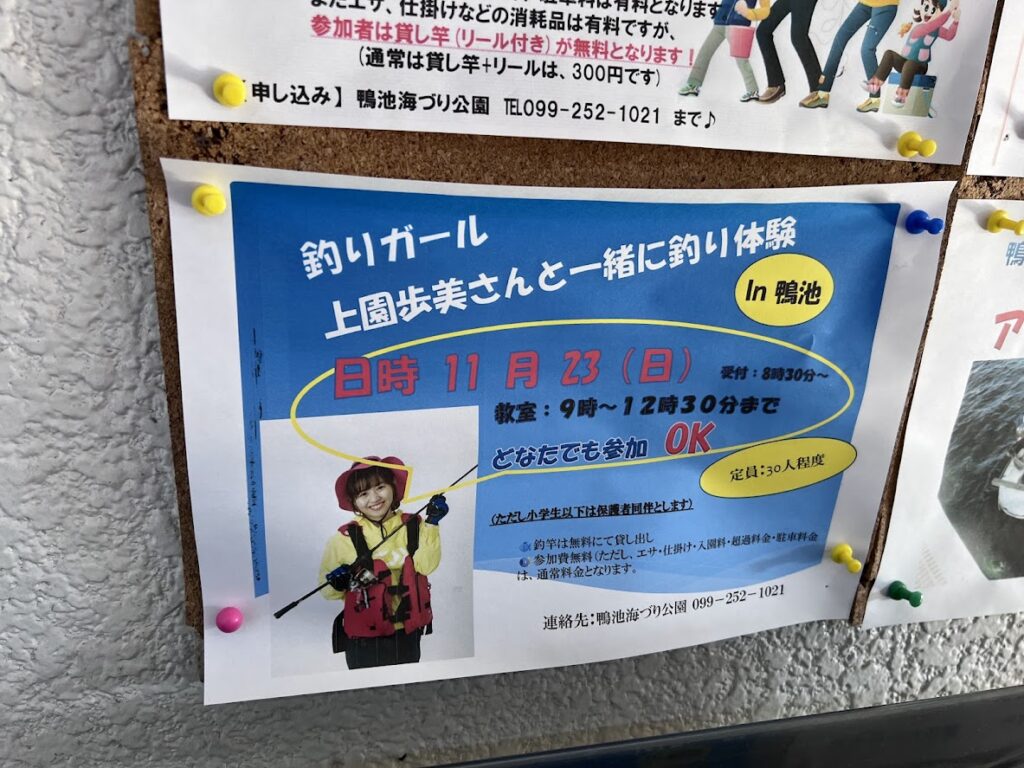 またエサ、仕掛けなどの消耗品は有料ですが、
参加者は貸し竿(リール付き)が無料となります!
(通常は貸し竿+リールは、300円です)
申し込み】 鴨池海づり公園 TEL099-252-1021 まで♪
釣りガール
上園歩美さんと一緒に釣り体験
In 鴨池
日時 11 月 23 (日) 受付:8時30分~
教室:9時~12時30分まで
どなたでも参加 OK
定員:30人程度
(ただし小学生以下は保護者同伴とします)
釣竿は無料にて貸し出し
参加費無料(ただし、エサ・仕掛け・入園料・超過料金・駐車料金
は、通常料金となります。
連絡先:鴨池海づり公園 099-252-1021
鴨
ア